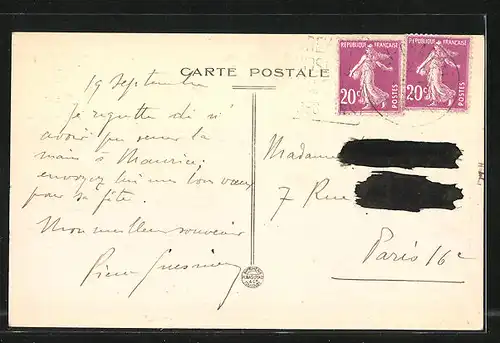 CARTE POSTALE
REPUBLIQUE FRANÇAISE
20c
POSTES
REPUBLIQUE FRANÇAISE
20c
POSTES
19 Septembre
Je regrette de n'
avoir pu serrer la
main à Maurice.
envoyez lui mes bons vœux
pour sa fête.
Mon meilleur souvenir
Pierre
Madame
7 Rue
Paris 16e